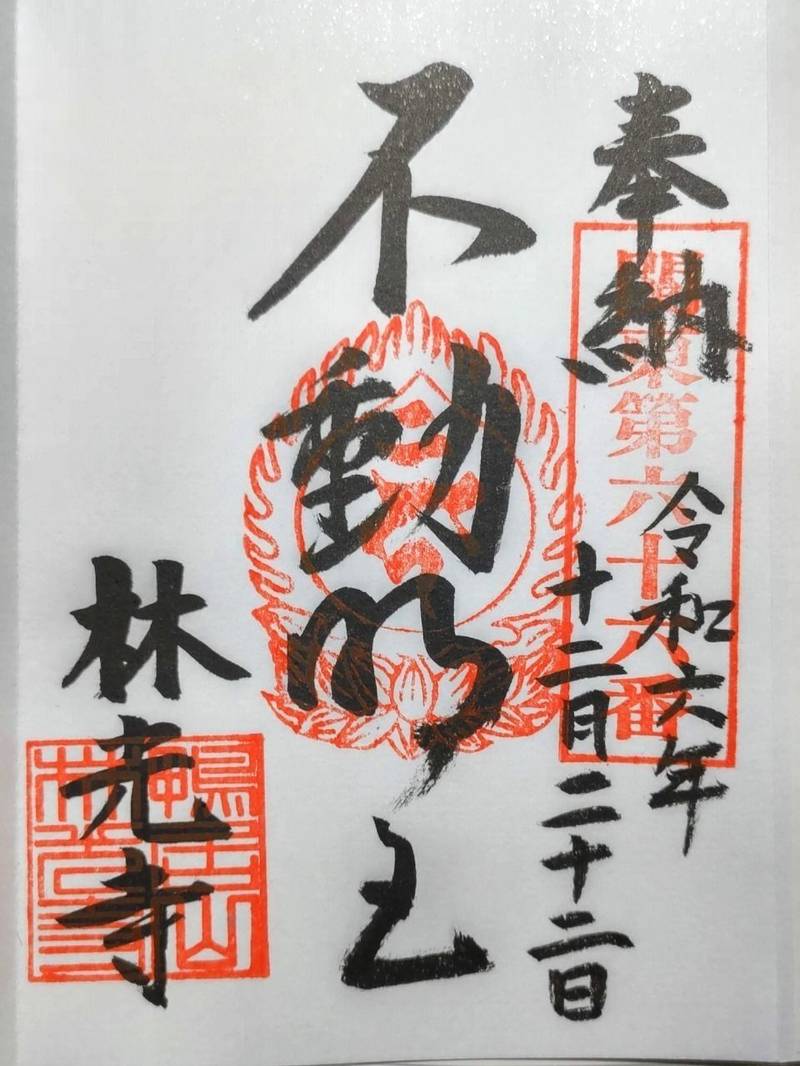 奉納
関東第六十六番
令和六年
十二月二十二日
不動明王
林光寺